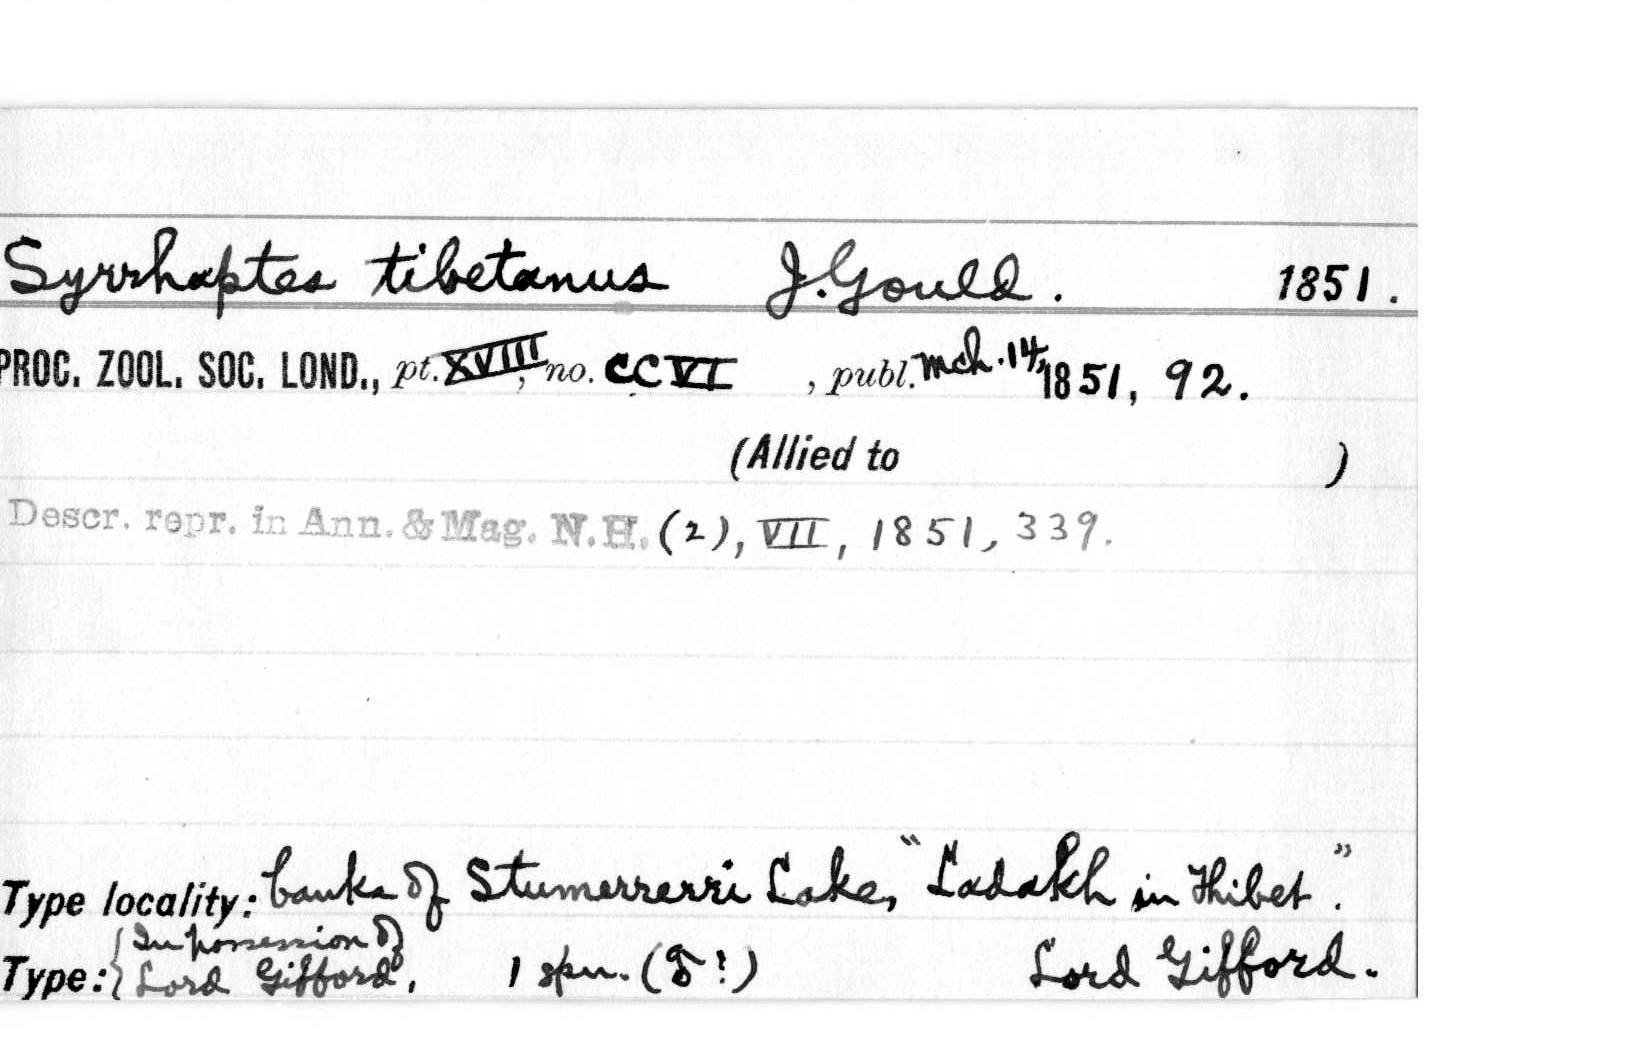 Syrrhaptes tibetanus J. Gould. 1851.
PROC. ZOOL. SOC. LOND., pt. XVIII, no. CCVI , publ. Mch. 14, 1851, 92.
(Allied to )
Descr. repr. in Ann. & Mag. N.H. (2), VII, 1851, 339.
Type locality: banks of Stumerrerri Lake, "Ladakh in Thibet."
Type: { In possession of
Lord Gifford, 1 spm. (♂!) Lord Gifford.